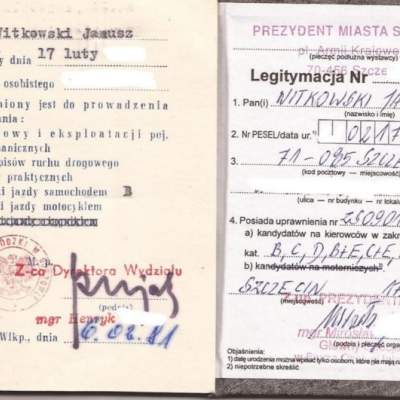 Witkowski Janusz
y dnia 17 luty
osobistego
niony jest do prowadzenia
ania:
owy i eksploatacji poj.
hanicznych
pisów ruchu drogowego
praktycznych
i jazdy samochodem B
i jazdy motocyklem
M. p.
Z-ca Dyrektora Wydziału
(podpis)
mgr Henryk
Wlkp., dnia 6.02.81
PREZYDENT MIASTA S
pl. Armii Krajowe
(pieczęć podłużna wystawcy)
70-456 Szcze
Legitymacja Nr
1. Pan(i) WITKOWSKI JA
(nazwisko i imię)
2. Nr PESEL/data ur. 0217
3. 71-085 SZCZE
(kod pocztowy — miejscowość)
(ulica — nr budynku — nr loka
4. Posiada uprawnienia nr
a) kandydatów na kierowców w zakr
kat. B, C, D, BtE, CtE,
b) kandydatów na motorniczych
SZCZECIN 17
(miejscowość)
PREZYDENT
mgr Mirosła
(podpis i pieczęć orga
Objaśnienia:
1) datę urodzenia można wpisać tylko osobom, które nie mają n
2) niepotrzebne skreślić